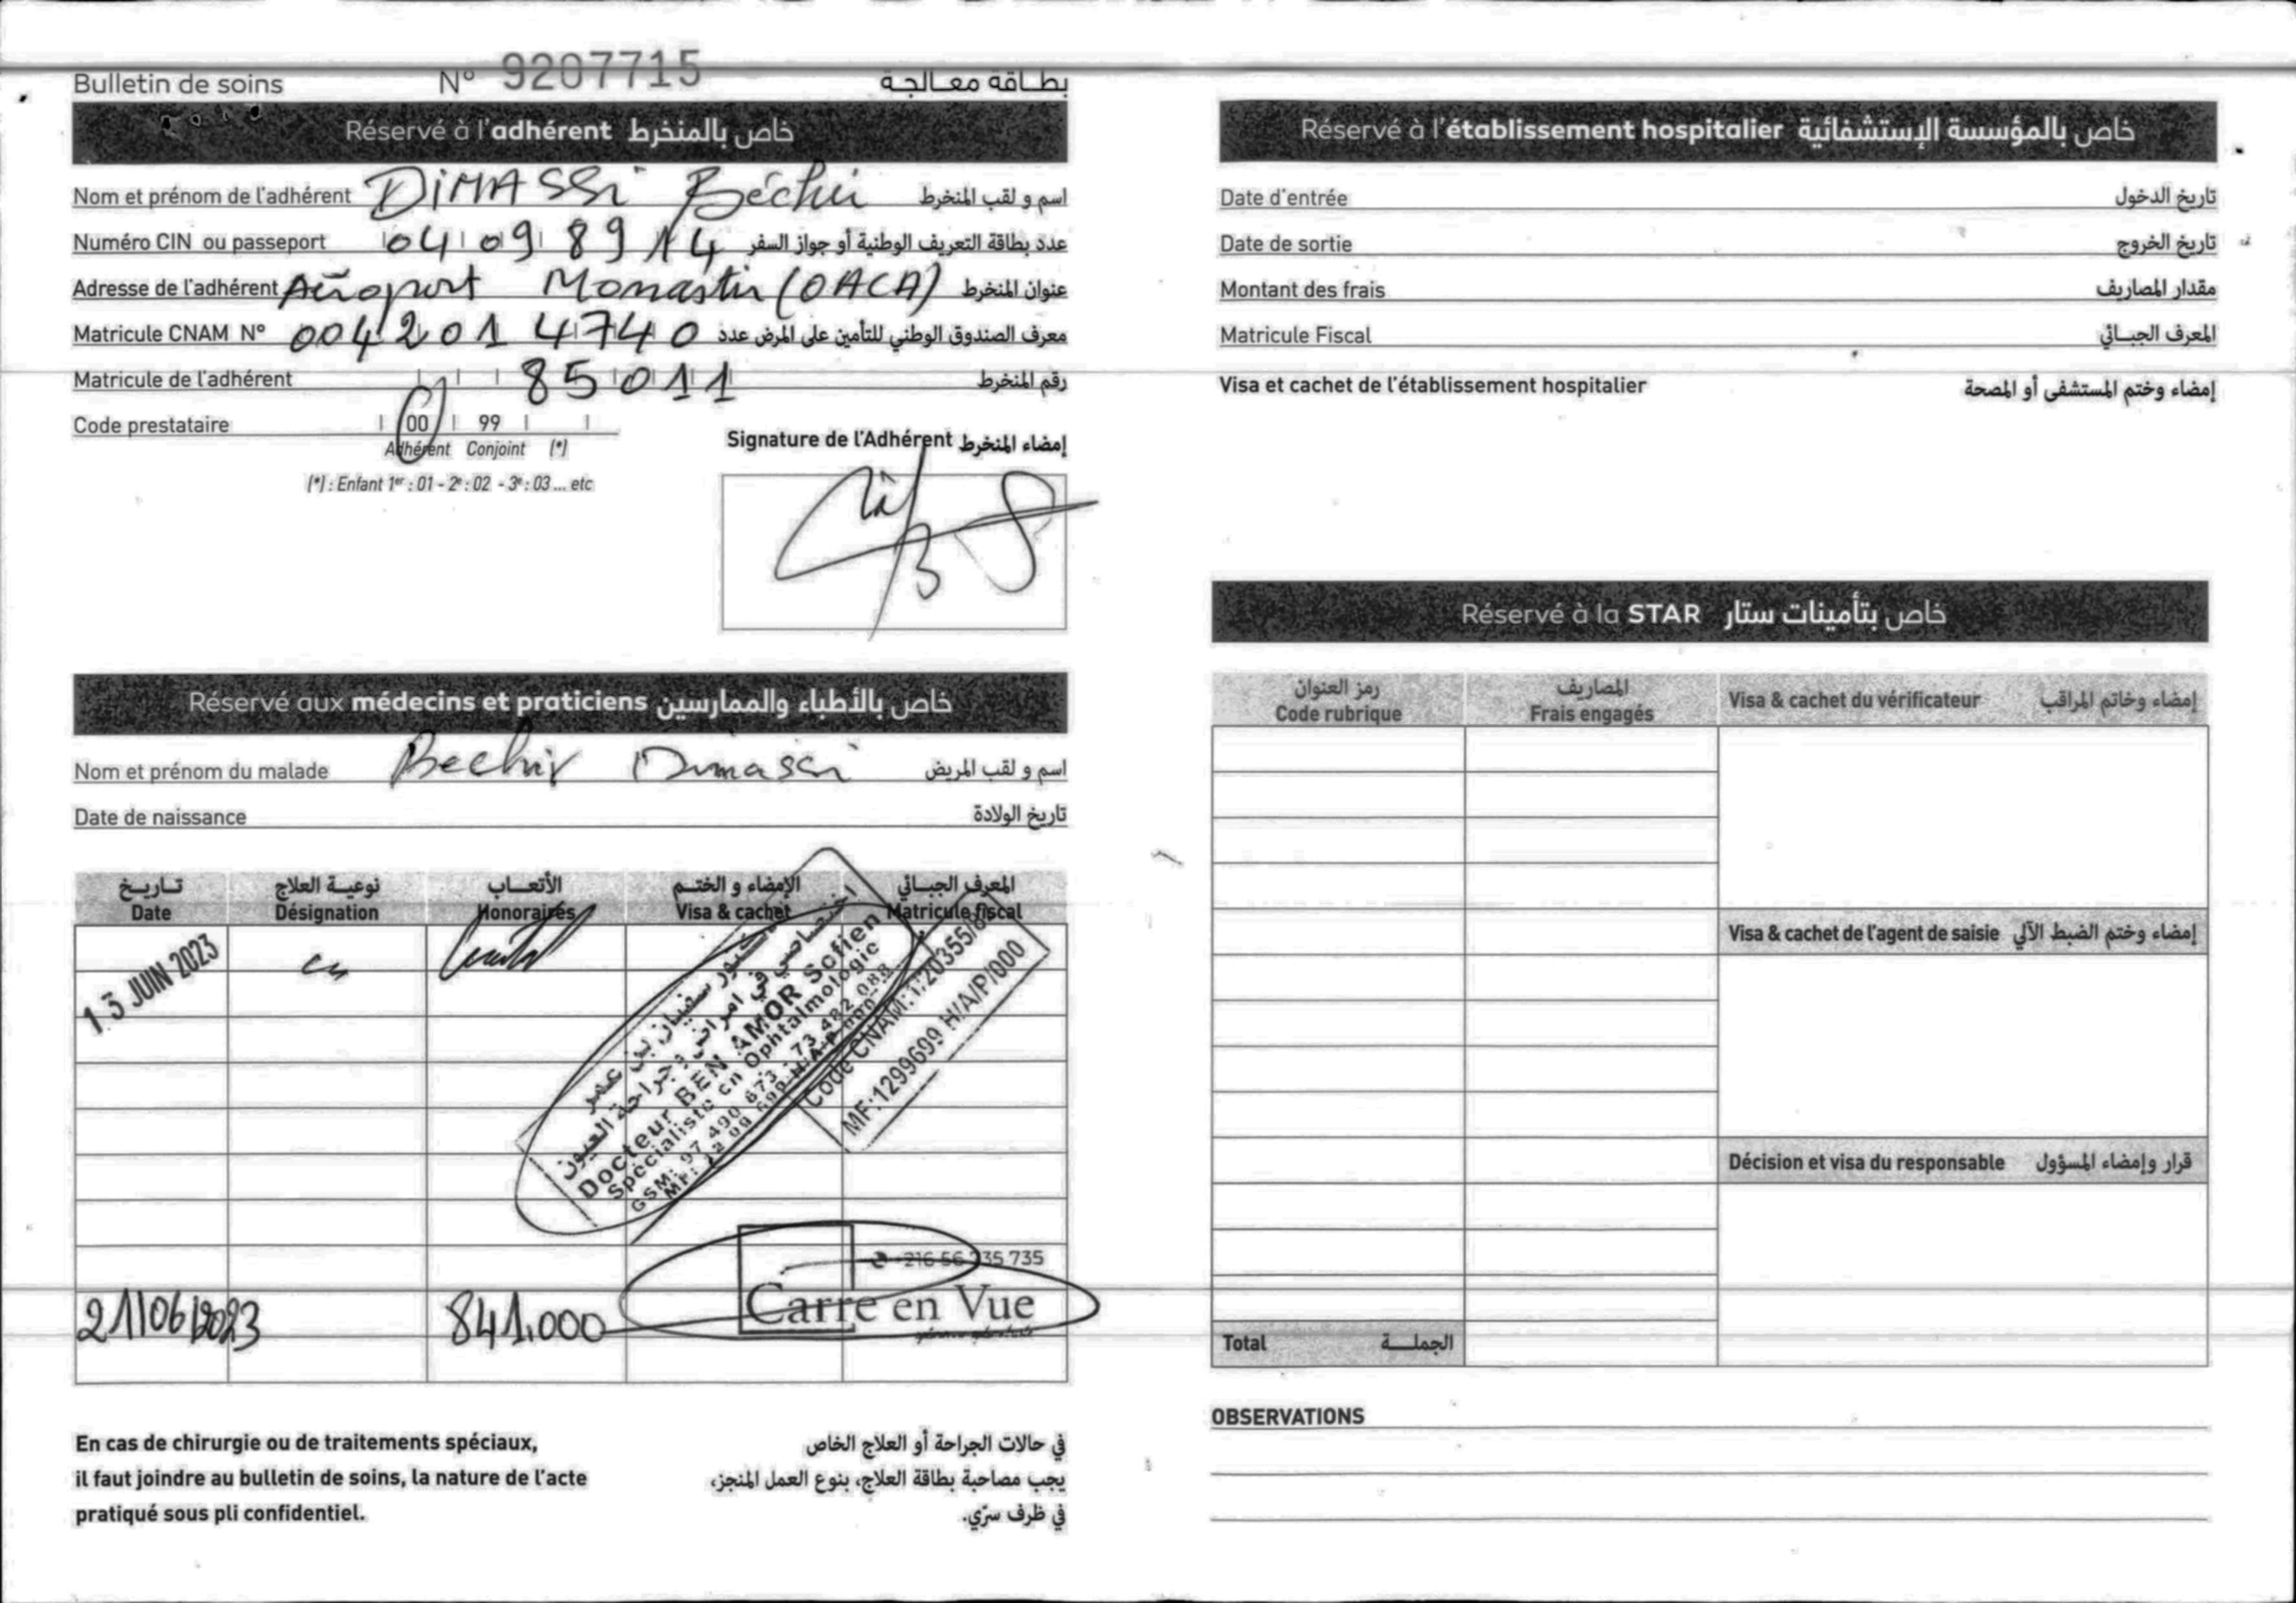 Bulletin de soins N° 9207715 بطاقة معالجة
Réservé à l'adhérent خاص بالمنخرط
Nom et prénom de l'adhérent DIMASSI Béchir اسم و لقب المنخرط
Numéro CIN ou passeport 04098914 عدد بطاقة التعريف الوطنية أو جواز السفر
Adresse de l'adhérent Aéroport Monastir (OACA) عنوان المنخرط
Matricule CNAM N° 004201 4740 معرف الصندوق الوطني للتأمين على المرض عدد
Matricule de l'adhérent 85011 رقم المنخرط
Code prestataire 00 99
Adhérent Conjoint (*)
(*) : Enfant 1er : 01 - 2e : 02 - 3e : 03 ... etc
Signature de l'Adhérent إمضاء المنخرط
Réservé aux médecins et praticiens خاص بالأطباء والممارسين
Nom et prénom du malade Bechir Dimassi اسم و لقب المريض
Date de naissance تاريخ الولادة
تاريخ نوعية العلاج الأتعاب الإمضاء و الختم المعرف الجبائي
Date Désignation Honoraires Visa & cachet Matricule fiscal
13 JUIN 2023
دكتور سفيان بن عمر
اختصاصي في امراض و جراحة العيون
Docteur BEN AMOR Sofien
Spécialiste en Ophtalmologie
GSM: 97 490 673 - 73 482 088
Code CNAM: 1/20355/8
MF: 1299699 H/A/P/000
+216 56 235 735
21/06/2023 841.000 Carré en Vue
En cas de chirurgie ou de traitements spéciaux,
il faut joindre au bulletin de soins, la nature de l'acte
pratiqué sous pli confidentiel.
في حالات الجراحة أو العلاج الخاص
يجب مصاحبة بطاقة العلاج، بنوع العمل المنجز،
في ظرف سرّي.
Réservé à l'établissement hospitalier خاص بالمؤسسة الإستشفائية
Date d'entrée تاريخ الدخول
Date de sortie تاريخ الخروج
Montant des frais مقدار المصاريف
Matricule Fiscal المعرف الجبائي
Visa et cachet de l'établissement hospitalier إمضاء وختم المستشفى أو المصحة
Réservé à la STAR خاص بتأمينات ستار
رمز العنوان المصاريف
Code rubrique Frais engagés Visa & cachet du vérificateur إمضاء وخاتم المراقب
Visa & cachet de l'agent de saisie إمضاء وختم الضبط الآلي
Décision et visa du responsable قرار وإمضاء المسؤول
Total الجملة
OBSERVATIONS